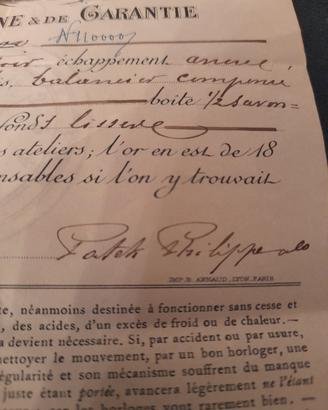 NE & DE GARANTIE
N 110009
échappement ancre,
balancier compensé
boîte ½ savon=
fonds lisses
s ateliers; l'or en est de 18
nsables si l'on y trouvait
Patek Philippe & Co
IMP. B. ARNAUD, LYON, PARIS
te, néanmoins destinée à fonctionner sans cesse et
, des acides, d'un excès de froid ou de chaleur.—
a devient nécessaire. Si, par accident ou par usure,
nettoyer le mouvement, par un bon horloger, une
égularité et son mécanisme souffrent du manque
juste étant portée, avancera légèrement ne l'étant
les horloges vont rarement bien. —